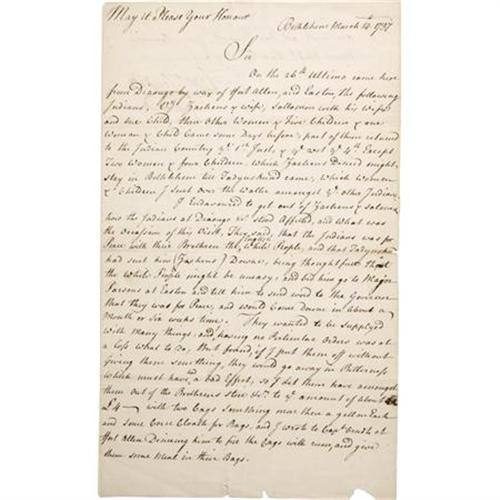 May it Please Your Honour
Bethlehem March 14th 1757
Sir
On the 26th Ultimo came here
from Diaougo by way of ffort Allen, and Easton, the following
Indians, Viz Zacheus & Wife, Sallomon with his Wife
and one Child, three other Women & Five Children & one
Woman & Child Came some Days before; part of them returned
to the Indian Country ye 1st Inst. & ye rest ye 4th Except
Two Women & four Children, which Zacheus Desired might
stay in Bethlehem till Tadyuskund came; Which Women
& Children I sent over the Water amongst ye other Indians.
I Endeavoured to get out of Zacheus & Salomon
how the Indians at Diaougo &c. stood Affected, and what was
the Occasion of this Visit. They said, that the Indians was for
Peace with their Brethren the English White People, and that Tadyuskund
had sent him (Zacheus) Down, being thoughtfull that
the White People might be uneasy, and bid him go to Major
Parsons at Easton and tell him to send word to the Governor
that they was for Peace, and would Come Down in about a
Month or Six weeks time. They wanted to be Supplyed
with Many things, and, having no Particular Orders was at
a Loss what to Do, But found, if I put them off without
Giving them something, they would go away in Bitterness
which must have a bad Effect, so I let them have amongst
them out of the Brethrens store &c. to ye amount of about
£4 — with two Cags Something more then a gallon Each
and Some Corse Cloath for Bags, and I wrote to Capt. at
ffort Allen Desiring him to fill the Cags with rum, and give
them some Meal in their Bags.